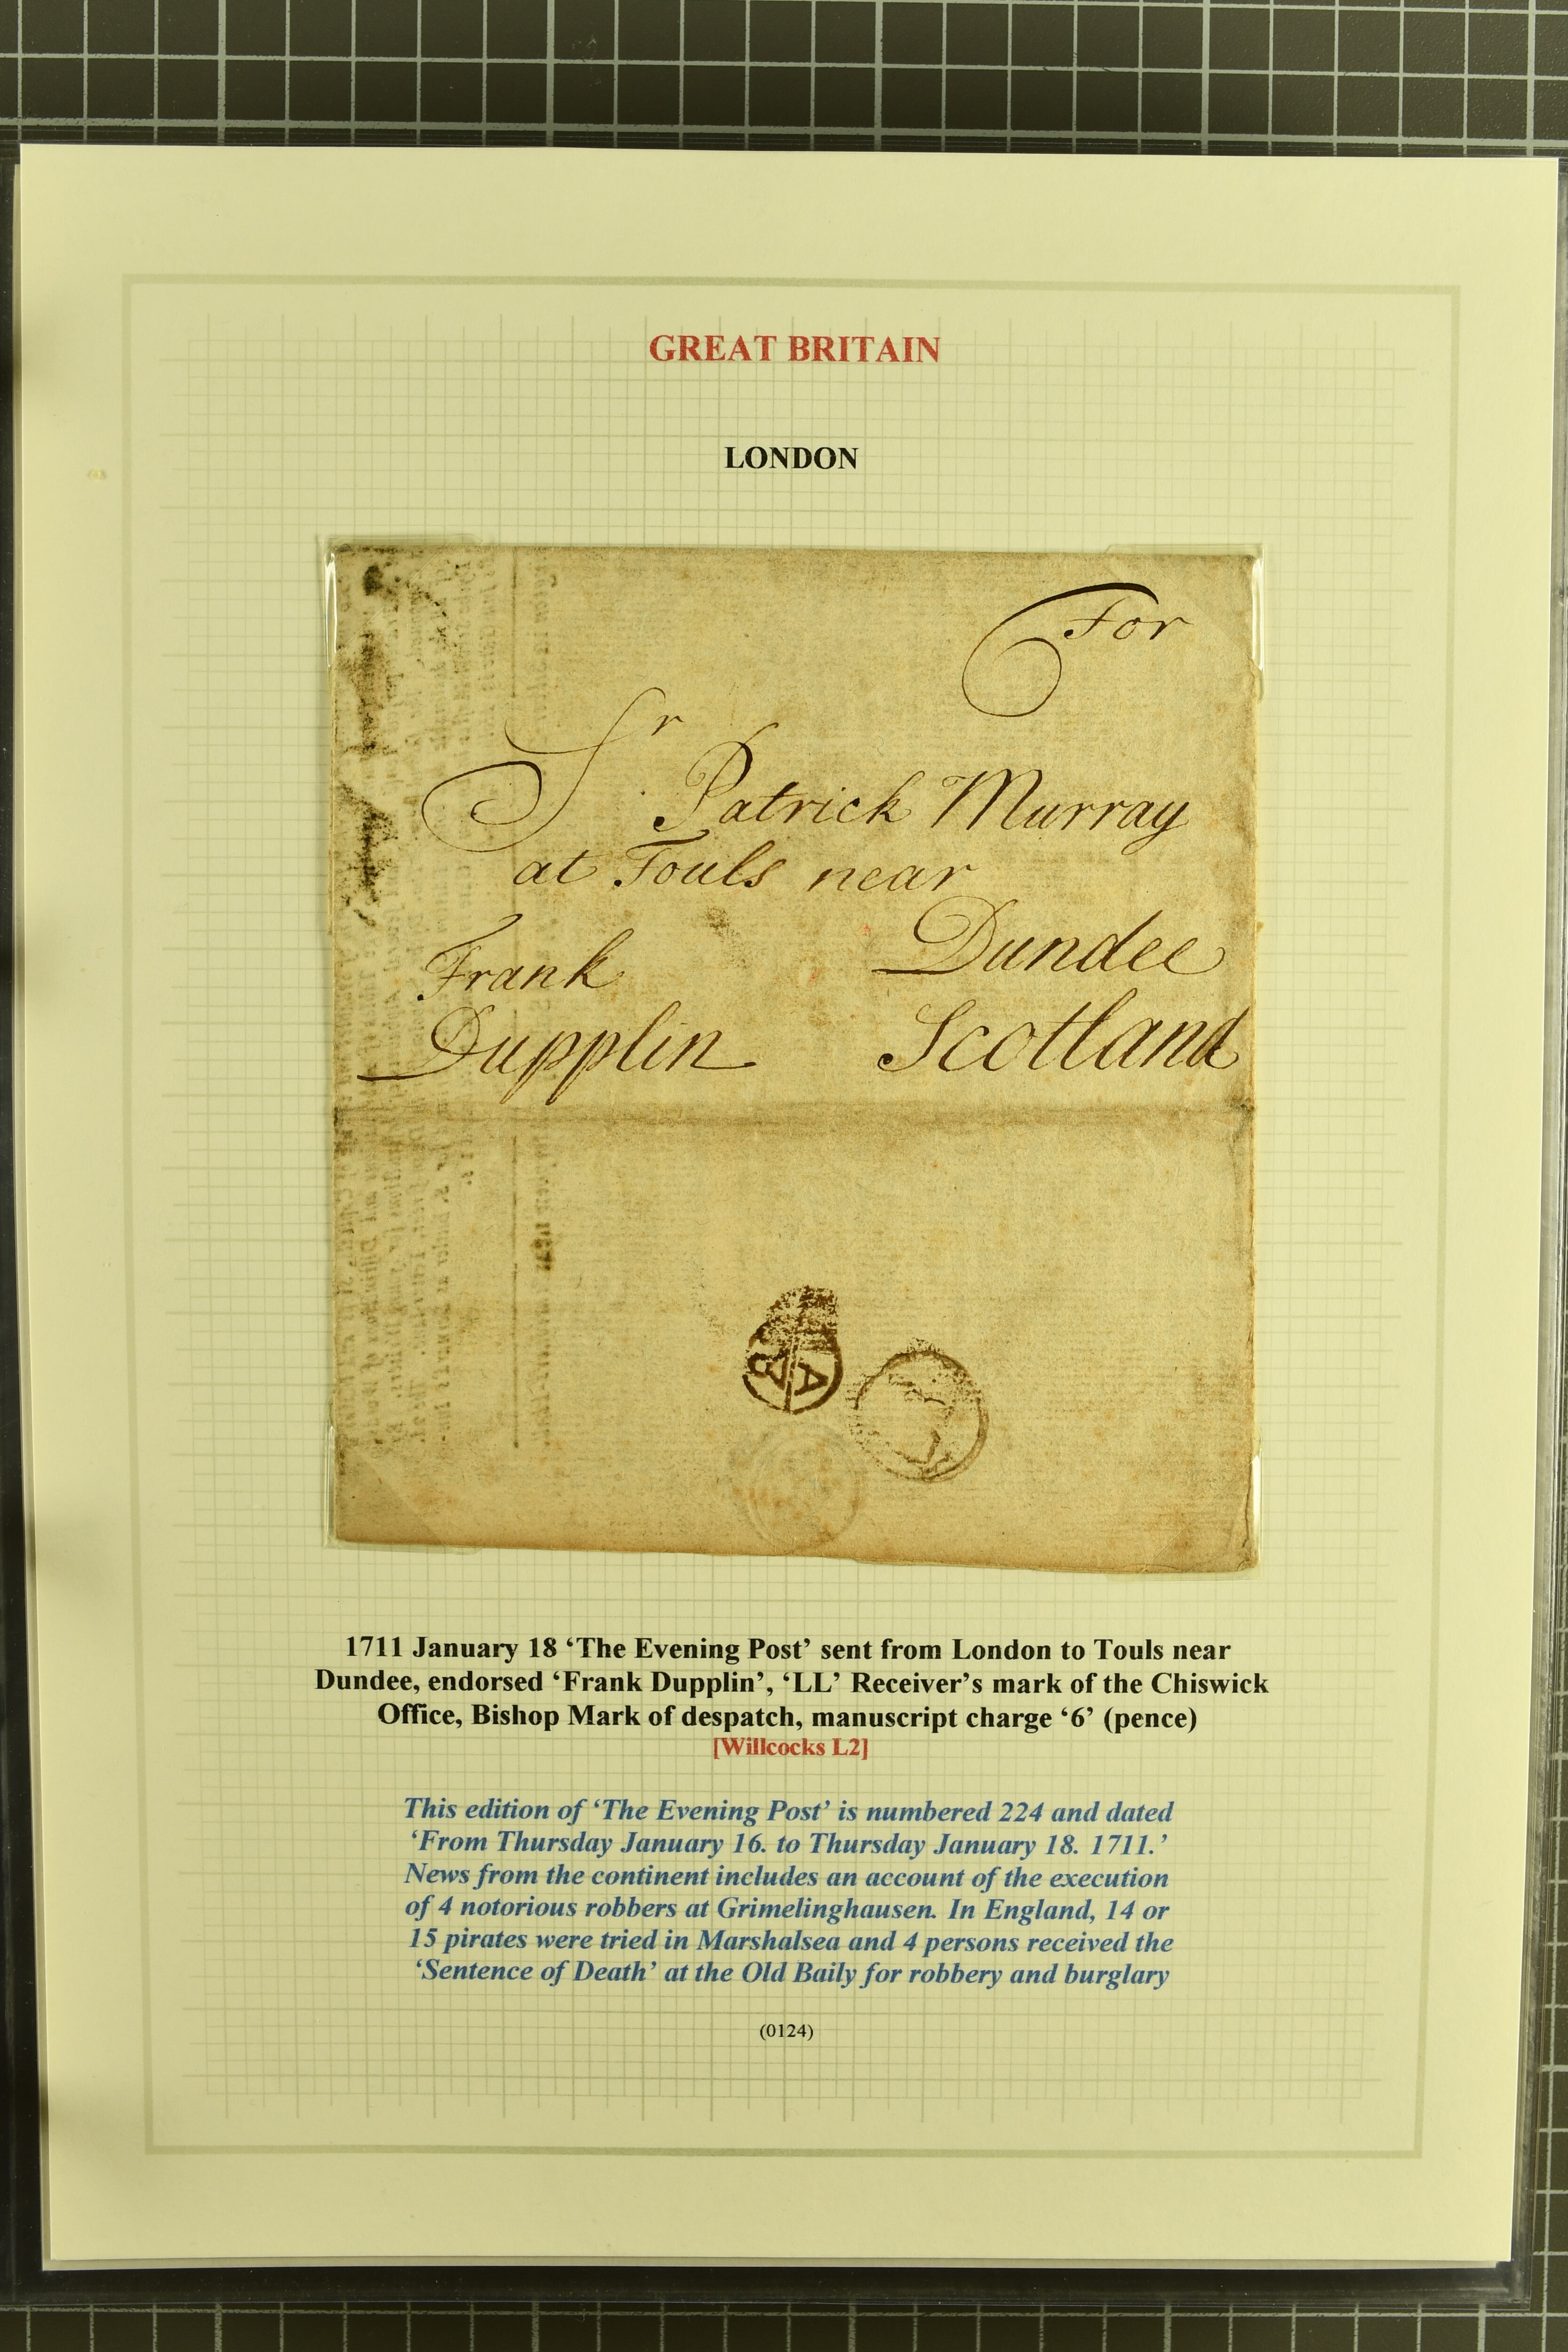 GREAT BRITAIN
LONDON
For
Sr Patrick Murray
at Touls near
Dundee
Frank
Dupplin
Scotland
A
B
1711 January 18 ‘The Evening Post’ sent from London to Touls near
Dundee, endorsed ‘Frank Dupplin’, ‘LL’ Receiver’s mark of the Chiswick
Office, Bishop Mark of despatch, manuscript charge ‘6’ (pence)
[Willcocks L2]
This edition of ‘The Evening Post’ is numbered 224 and dated
‘From Thursday January 16. to Thursday January 18. 1711.’
News from the continent includes an account of the execution
of 4 notorious robbers at Grimelinghausen. In England, 14 or
15 pirates were tried in Marshalsea and 4 persons received the
‘Sentence of Death’ at the Old Baily for robbery and burglary
(0124)